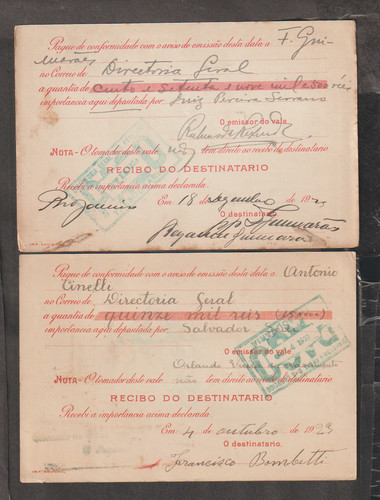 Pague de conformidade com o aviso de emissão desta data a F. Gui-
marães
no Correio de Directoria Geral
a quantia de cento e setenta e nove mil e 500 réis
importancia aqui depositada por Luiz Pereira Serrano
O emissor do vale
NOTA - O tomador deste vale não tem direito ao recibo do destinatario
RECIBO DO DESTINATARIO
Recebi a importancia acima declarada.
Rio Janeiro Em 18 de dezembro de 192
O destinatario
Guimarães
Guimarães
Pague de conformidade com o aviso de emissão desta data a Antonio
Cinelli
no Correio de Directoria Geral
a quantia de quinze mil réis
importancia aqui depositada por Salvador
O emissor do vale
Orlando
NOTA - O tomador deste vale não tem direito ao recibo do destinatario
RECIBO DO DESTINATARIO
Recebi a importancia acima declarada
Em 4 de outubro de 1923
O destinatario,
Francisco Bombetti
PAGO